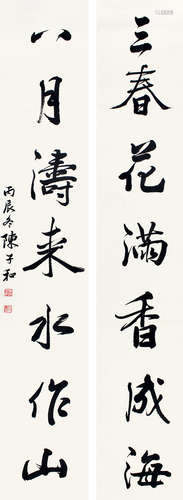 三春花滿香成海
八月濤來水作山
丙辰冬陳子和